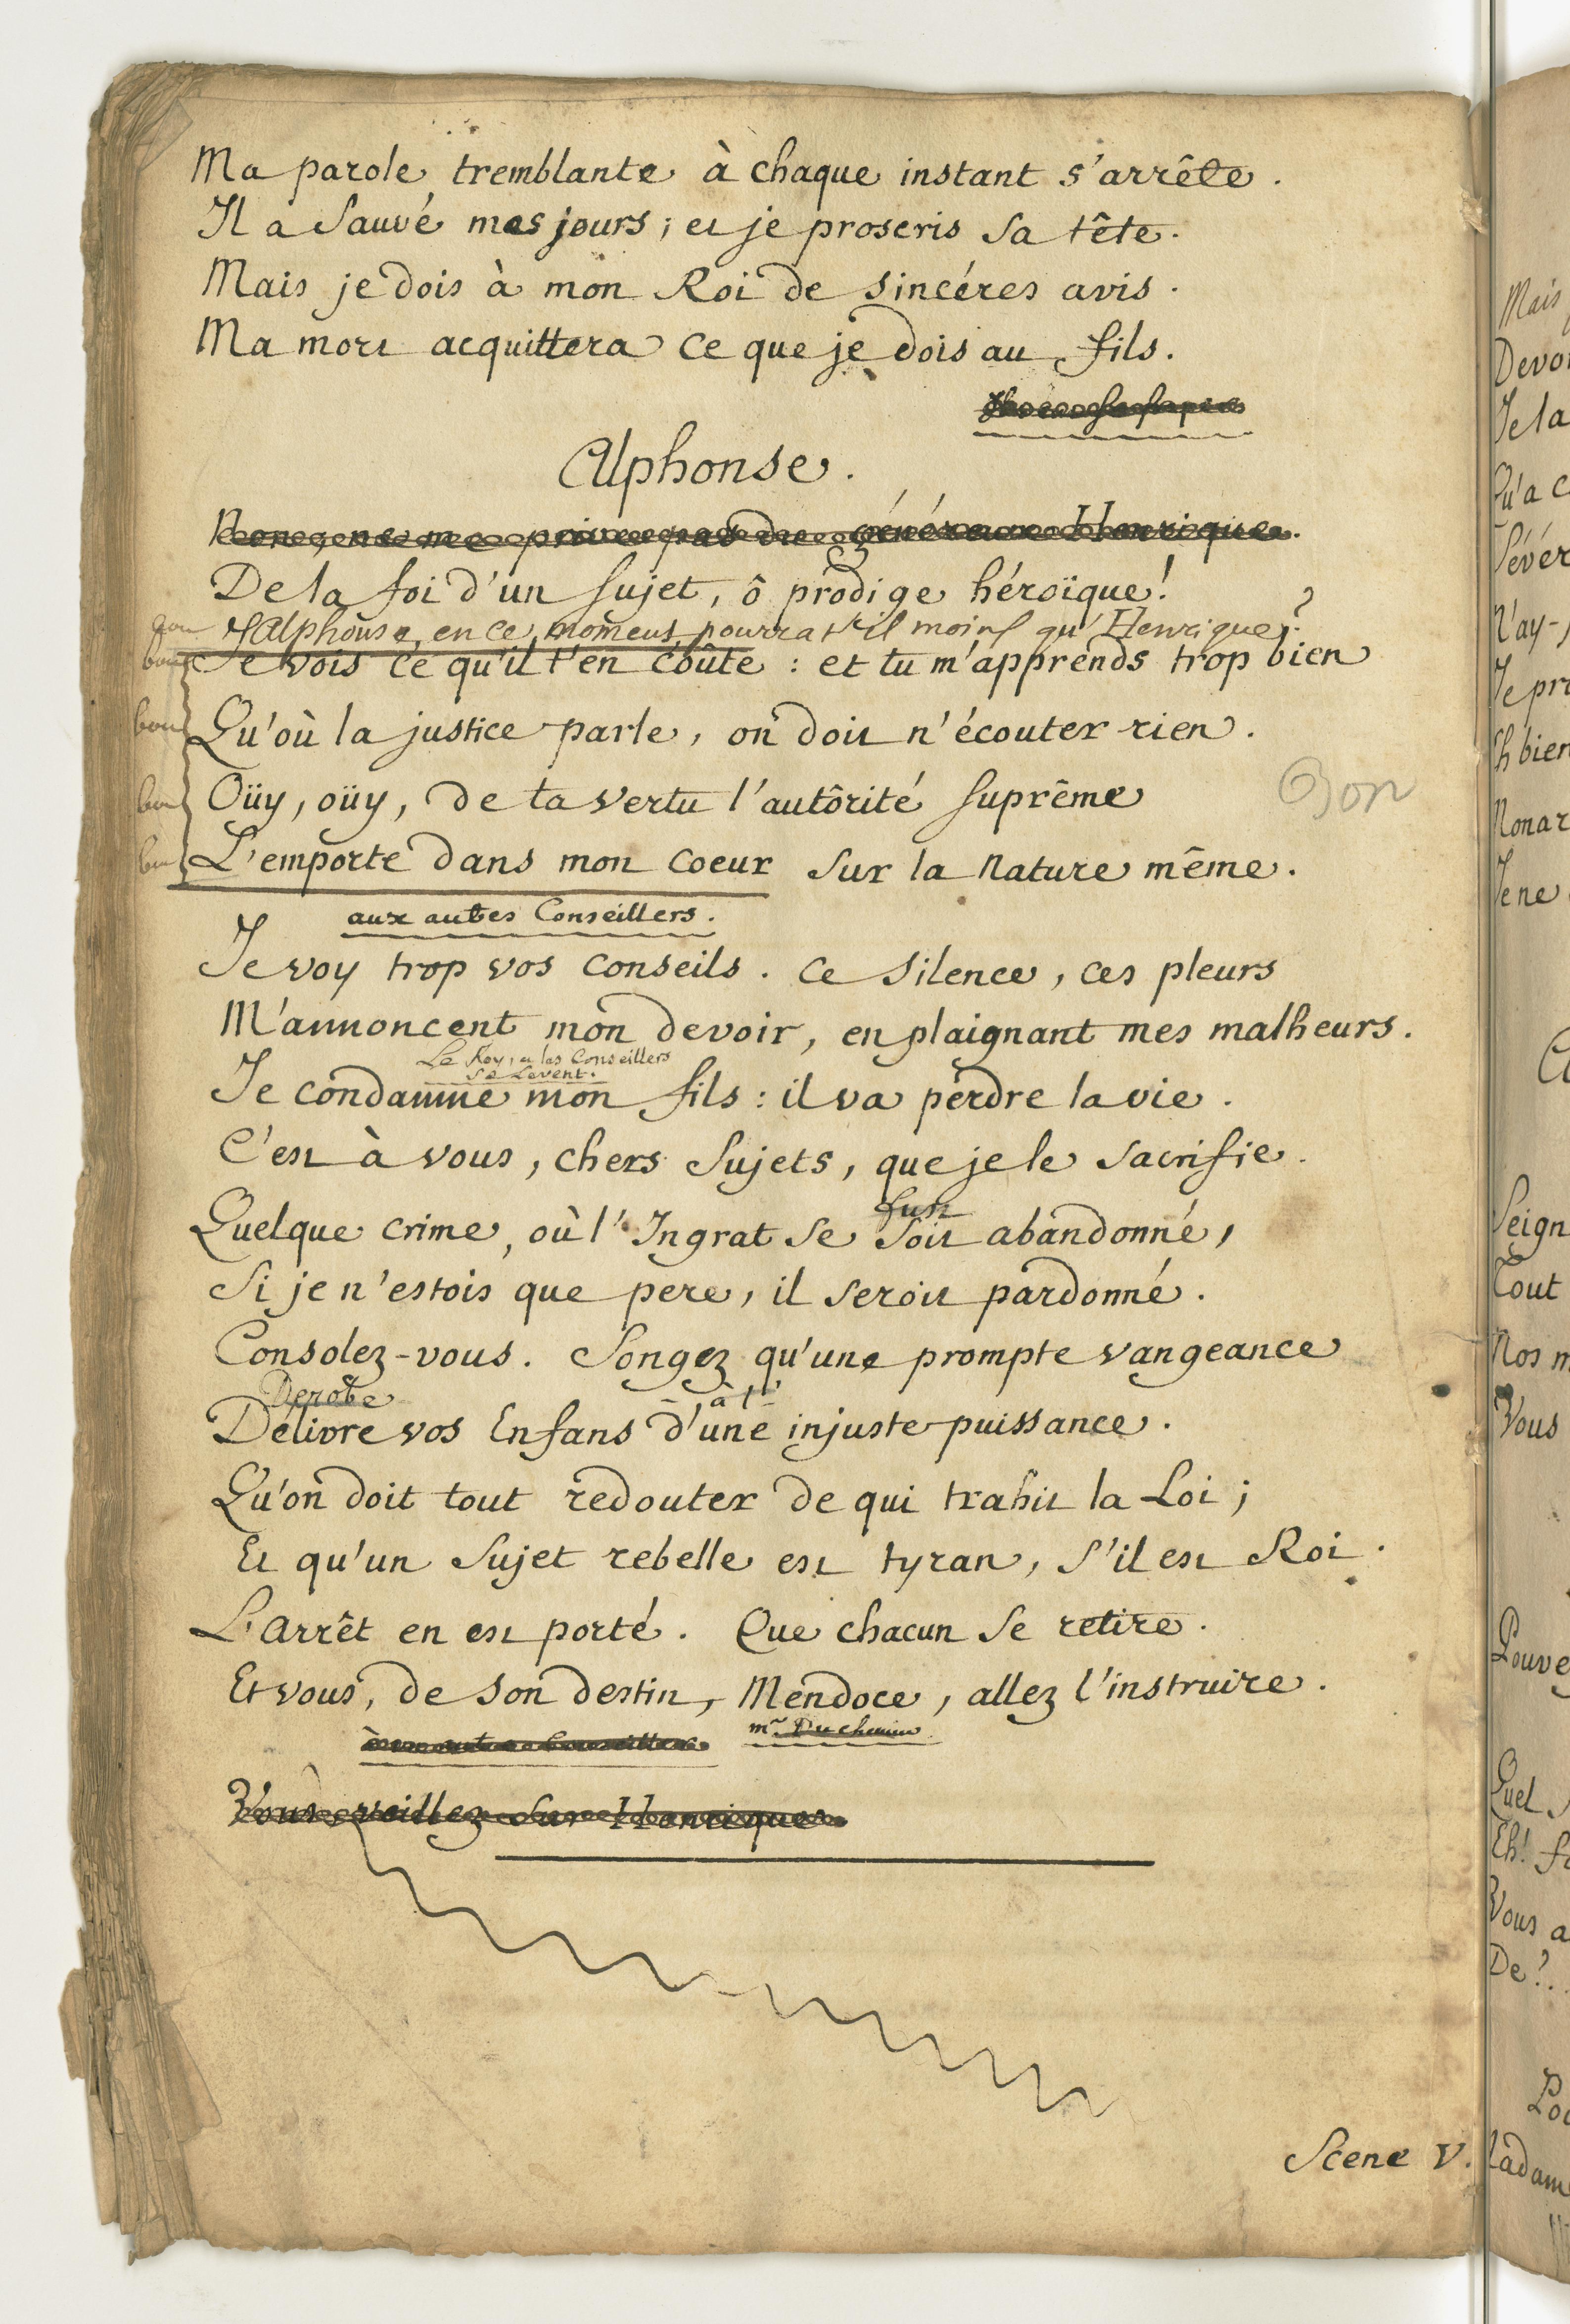 Ma parole tremblante à chaque instant s'arrête.
Il a sauvé mes jours ; et je proscris sa tête.
Mais je dois à mon Roi de sincéres avis.
Ma mort acquittera ce que je dois au fils.
Alphonse.
De la foi d'un sujet, ô prodige héroïque!
Alphonse, en ce moment pourra t'il moins qu'Henrique?
bon
Je vois ce qu'il t'en coûte : et tu m'apprends trop bien
bon
Qu'où la justice parle, on doit n'écouter rien.
bon
Oüy, oüy, de ta vertu l'autôrité suprême
Bon
bon
L'emporte dans mon coeur sur la nature même.
aux autres Conseillers.
Je voy trop vos conseils. Ce silence, ces pleurs
M'annoncent mon devoir, en plaignant mes malheurs.
Le Roy, et les Conseillers
se Levent.
Je condamne mon fils : il va perdre la vie.
C'est à vous, chers sujets, que je le sacrifie.
fust
Quelque crime, où l'Ingrat se soit abandonné,
Si je n'estois que pere, il seroit pardonné.
Consolez-vous. Songez qu'une prompte vangeance
Derobe à l'
Délivre vos Enfans d'une injuste puissance.
Qu'on doit tout redouter de qui trahit la Loi ;
Et qu'un sujet rebelle est tyran, s'il est Roi.
L'arrêt en est porté. Que chacun se retire.
Et vous, de son destin, Mendoce, allez l'instruire.
mr. Duchemin
Vous, veillez sur Henrique.
Scene V.
Mais
Je la
Qu'a
N'ay-
Tout
Vous
Quel
Eh!
Vous a
De?..